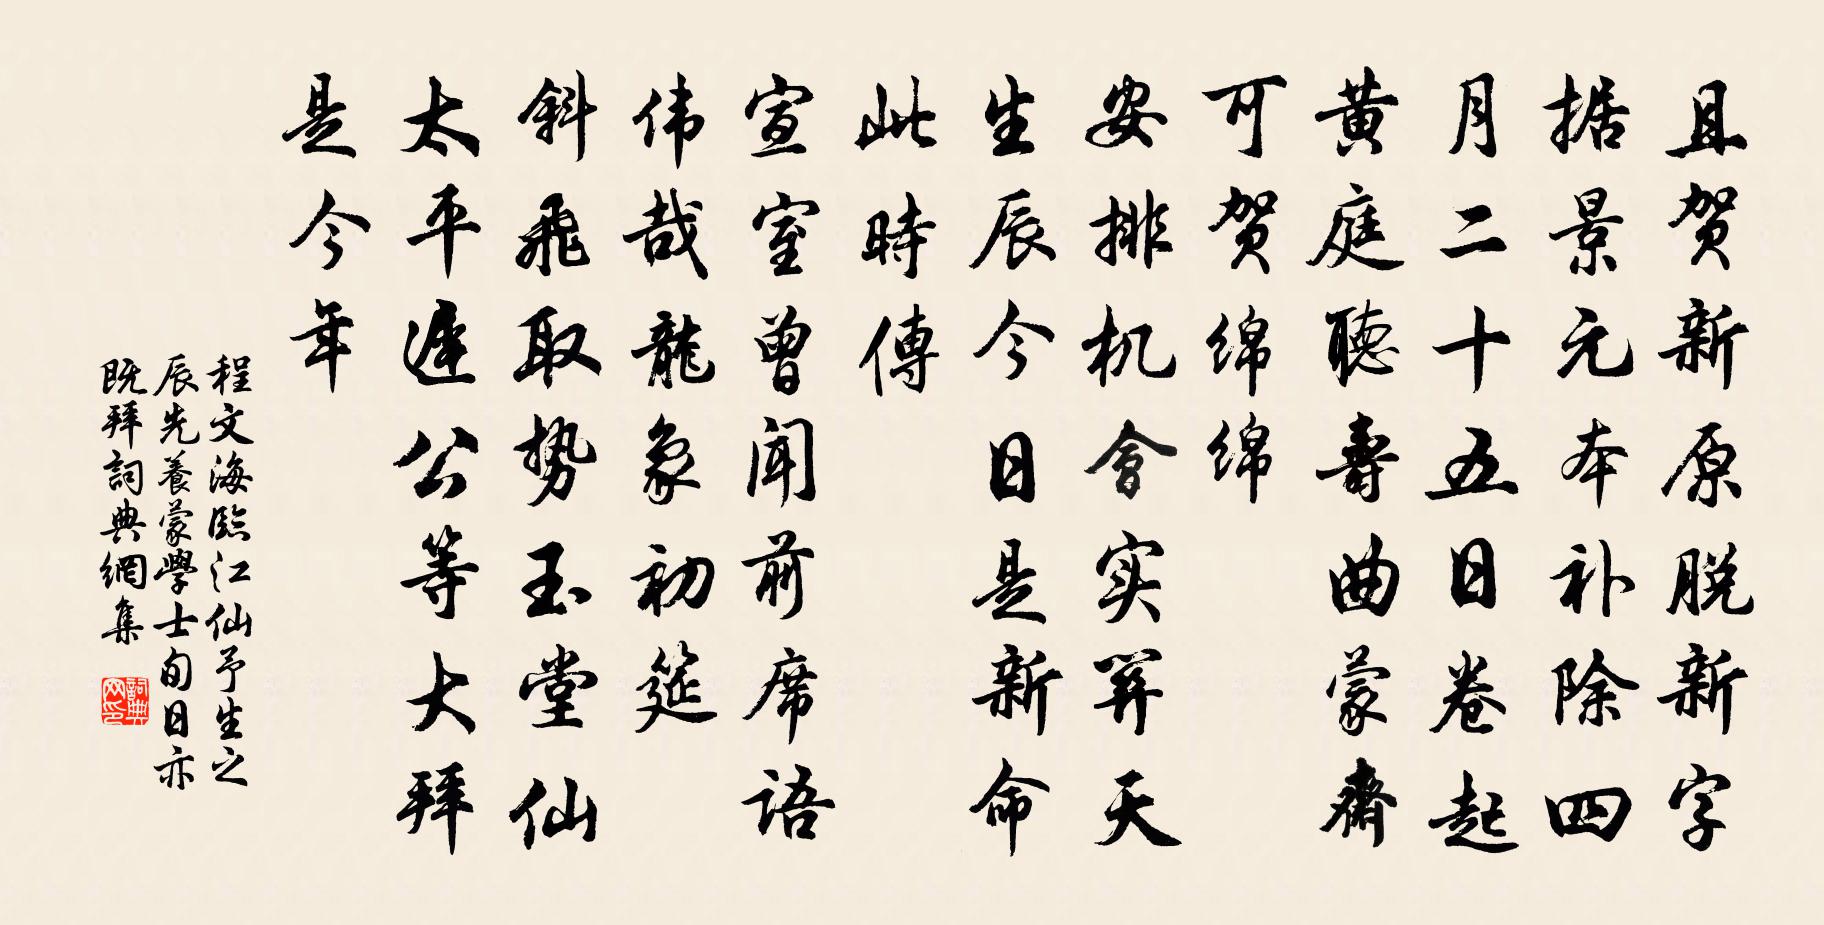 且贺新原脱新字
据景元本补除四
月二十五日卷起
黄庭聽壽曲蒙齋
可贺绵绵
安排机會实关天
生辰今日是新命
此時傳
宣室曾闻前席語
伟哉龍象初筵
斜飛取势玉堂仙
太平遲公等大拜
是今年
程文海臨江仙予生之
辰先養蒙學士旬日亦
既拜詞典網集
詞典網印